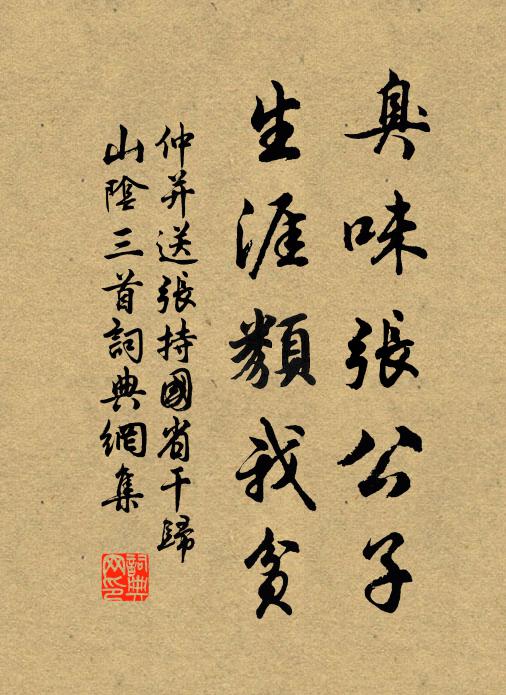 臭味張公子
生涯類我貧
仲并送張持國省干歸
山陰三首詞典網集
詞典
网印